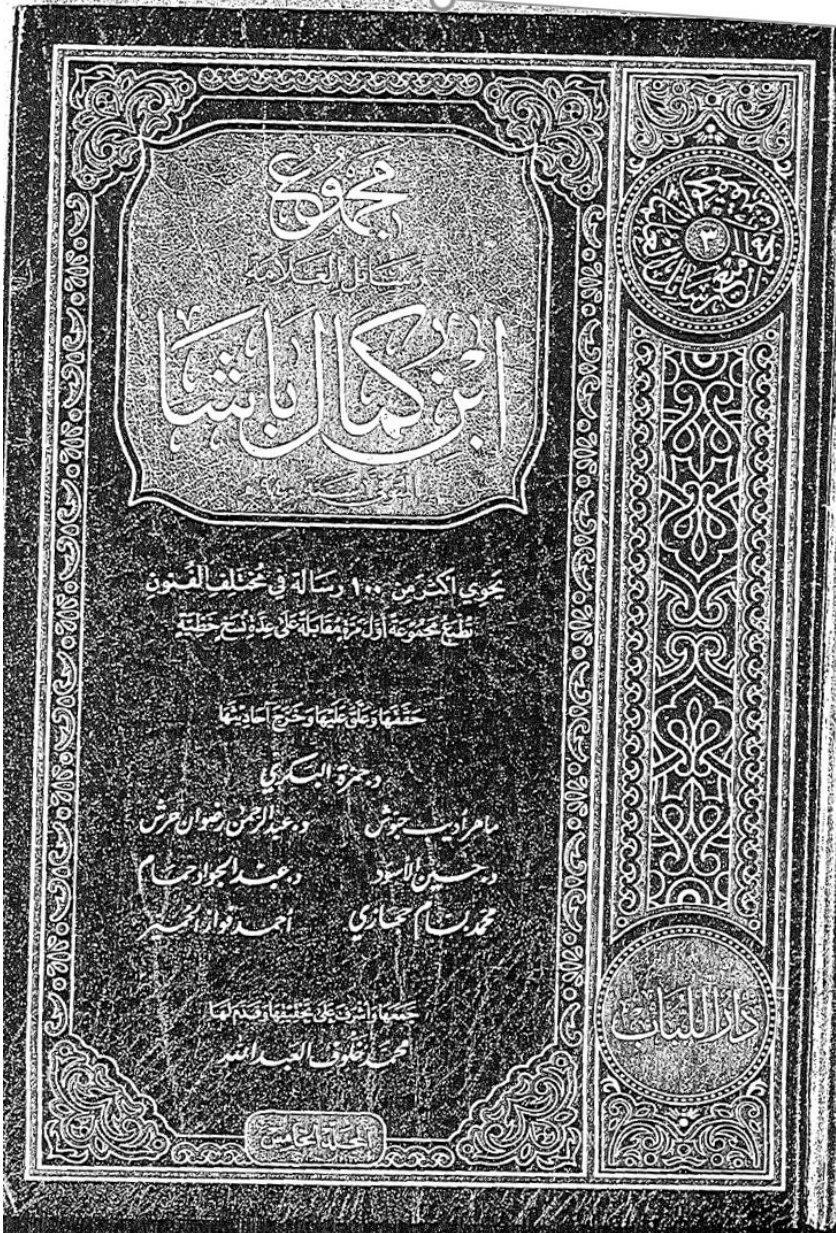 مجموع
رسائل العلامة
ابن كمال باشا
المتوفى سنة ٩٤٠هـ
يحوي أكثر من ١٠٠ رسالة في مختلف الفنون
تطبع مجموعة أول مرة مقابلة على عدة نسخ خطية
حققها وعلق عليها وخرج أحاديثها
د. حمزة البكري
ماهر أديب حبوش د. عبدالرحمن رضوان حرش
د. حسين الأسود د. عبد الجواد حمام
محمد بسام حجازي أحمد فواز الحمير
جمعها وأشرف على تحقيقها وقدم لها
محمد خلوف العبدالله
المجلد الخامس
٣
دار اللباب